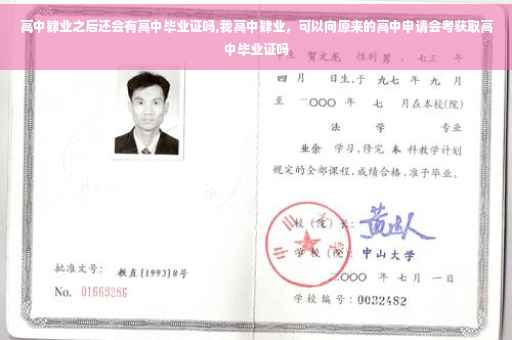 高中肄业之后还会有高中毕业证吗,我高中肄业，可以向原来的高中申请会考获取高
中毕业证吗
贺文龙 性别 男 ，七三 年
四 月 日生,于 九七 年 九 月
至 二〇〇〇 年 七 月在本校(院)
法 学 专业
业余 学习,修完 本 科教学计划
规定的全部课程,成绩合格,准予毕业。
校 (院) 长:
中山大学
学 校 (院) : 中山大学
二〇〇〇 年 七月 一日
批准文号: 教直[1993]8号
No. 01669286
学校编号: 0032482